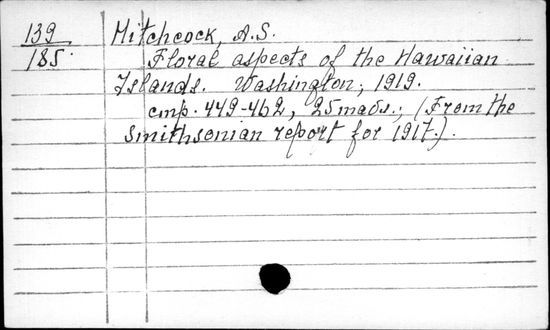 139 Hitchcock, A.S.
185 Floral aspects of the Hawaiian
Islands. Washington, 1919.
cmp. 449-462, 25 табл.; (From the
Smithsonian report for 1917.).